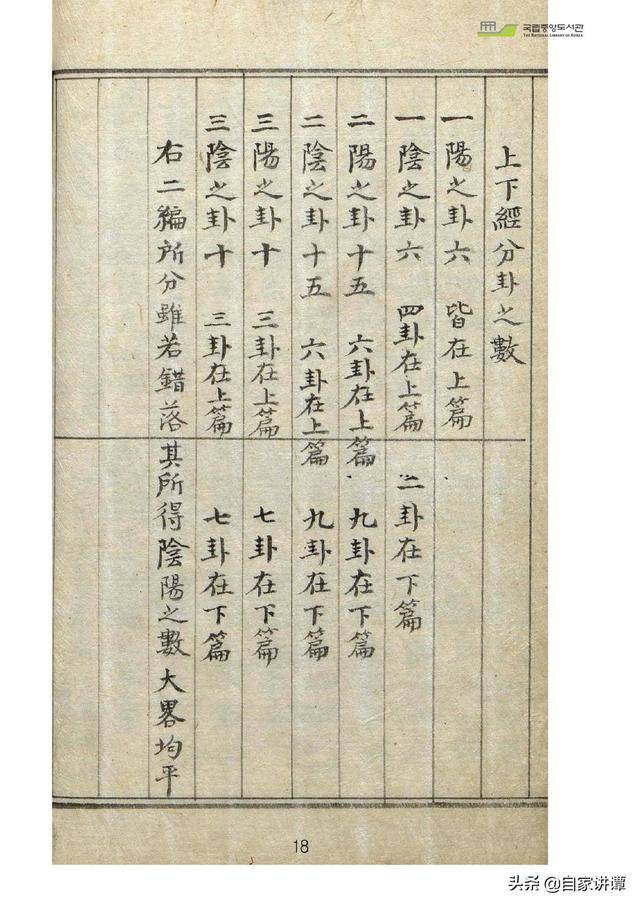 국립중앙도서관
THE NATIONAL LIBRARY OF KOREA
上下經分卦之數
一陽之卦六 皆在上篇
一陰之卦六 四卦在上篇 二卦在下篇
二陽之卦十五 六卦在上篇 九卦在下篇
二陰之卦十五 六卦在上篇 九卦在下篇
三陽之卦十 三卦在上篇 七卦在下篇
三陰之卦十 三卦在上篇 七卦在下篇
右二編所分雖若錯落其所得陰陽之數大畧均平
18
头条 @自家讲谭